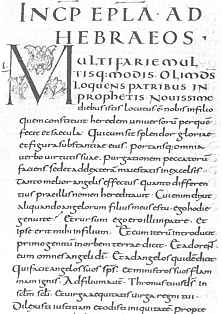 INCP EPLA AD
HEBRAEOS
MULTIFARIE MUL
TISQ: MODIS OLIM DS
LOQUENS PATRIBUS IN
PROPHETIS NOUISSIME
diebus istis locutus e nobis in filio
quem constituit heredem uniuersorum per que
fecit et saecula Qui cum sit splendor gloriae
et figura substantiae eius Portansq: omnia
uerbo uirtutis suae Purgationem peccatorum
faciens sedet ad dexteram maiestatis in excelsis
Tanto melior angelis effectus Quanto differen
tius prae illis nomen hereditauit Cui enim dixit
aliquando angelorum filius meus es tu ego hodie
genui te Et rursum ego ero illi in patre Et
ipse erit mihi in filium Et cum iterum introducit
primogenitum in orbem terrae dicit Et adorent
eum omnes angeli di Et ad angelos quidem dicit
Qui facit angelos suos sps Et ministros suos flam
mam ignis Ad filium autem Thronus tuus ds in
sclm scli Et uirga aequitatis uirga regni tui
Dilexisti iustitiam et odisti iniquitate propte